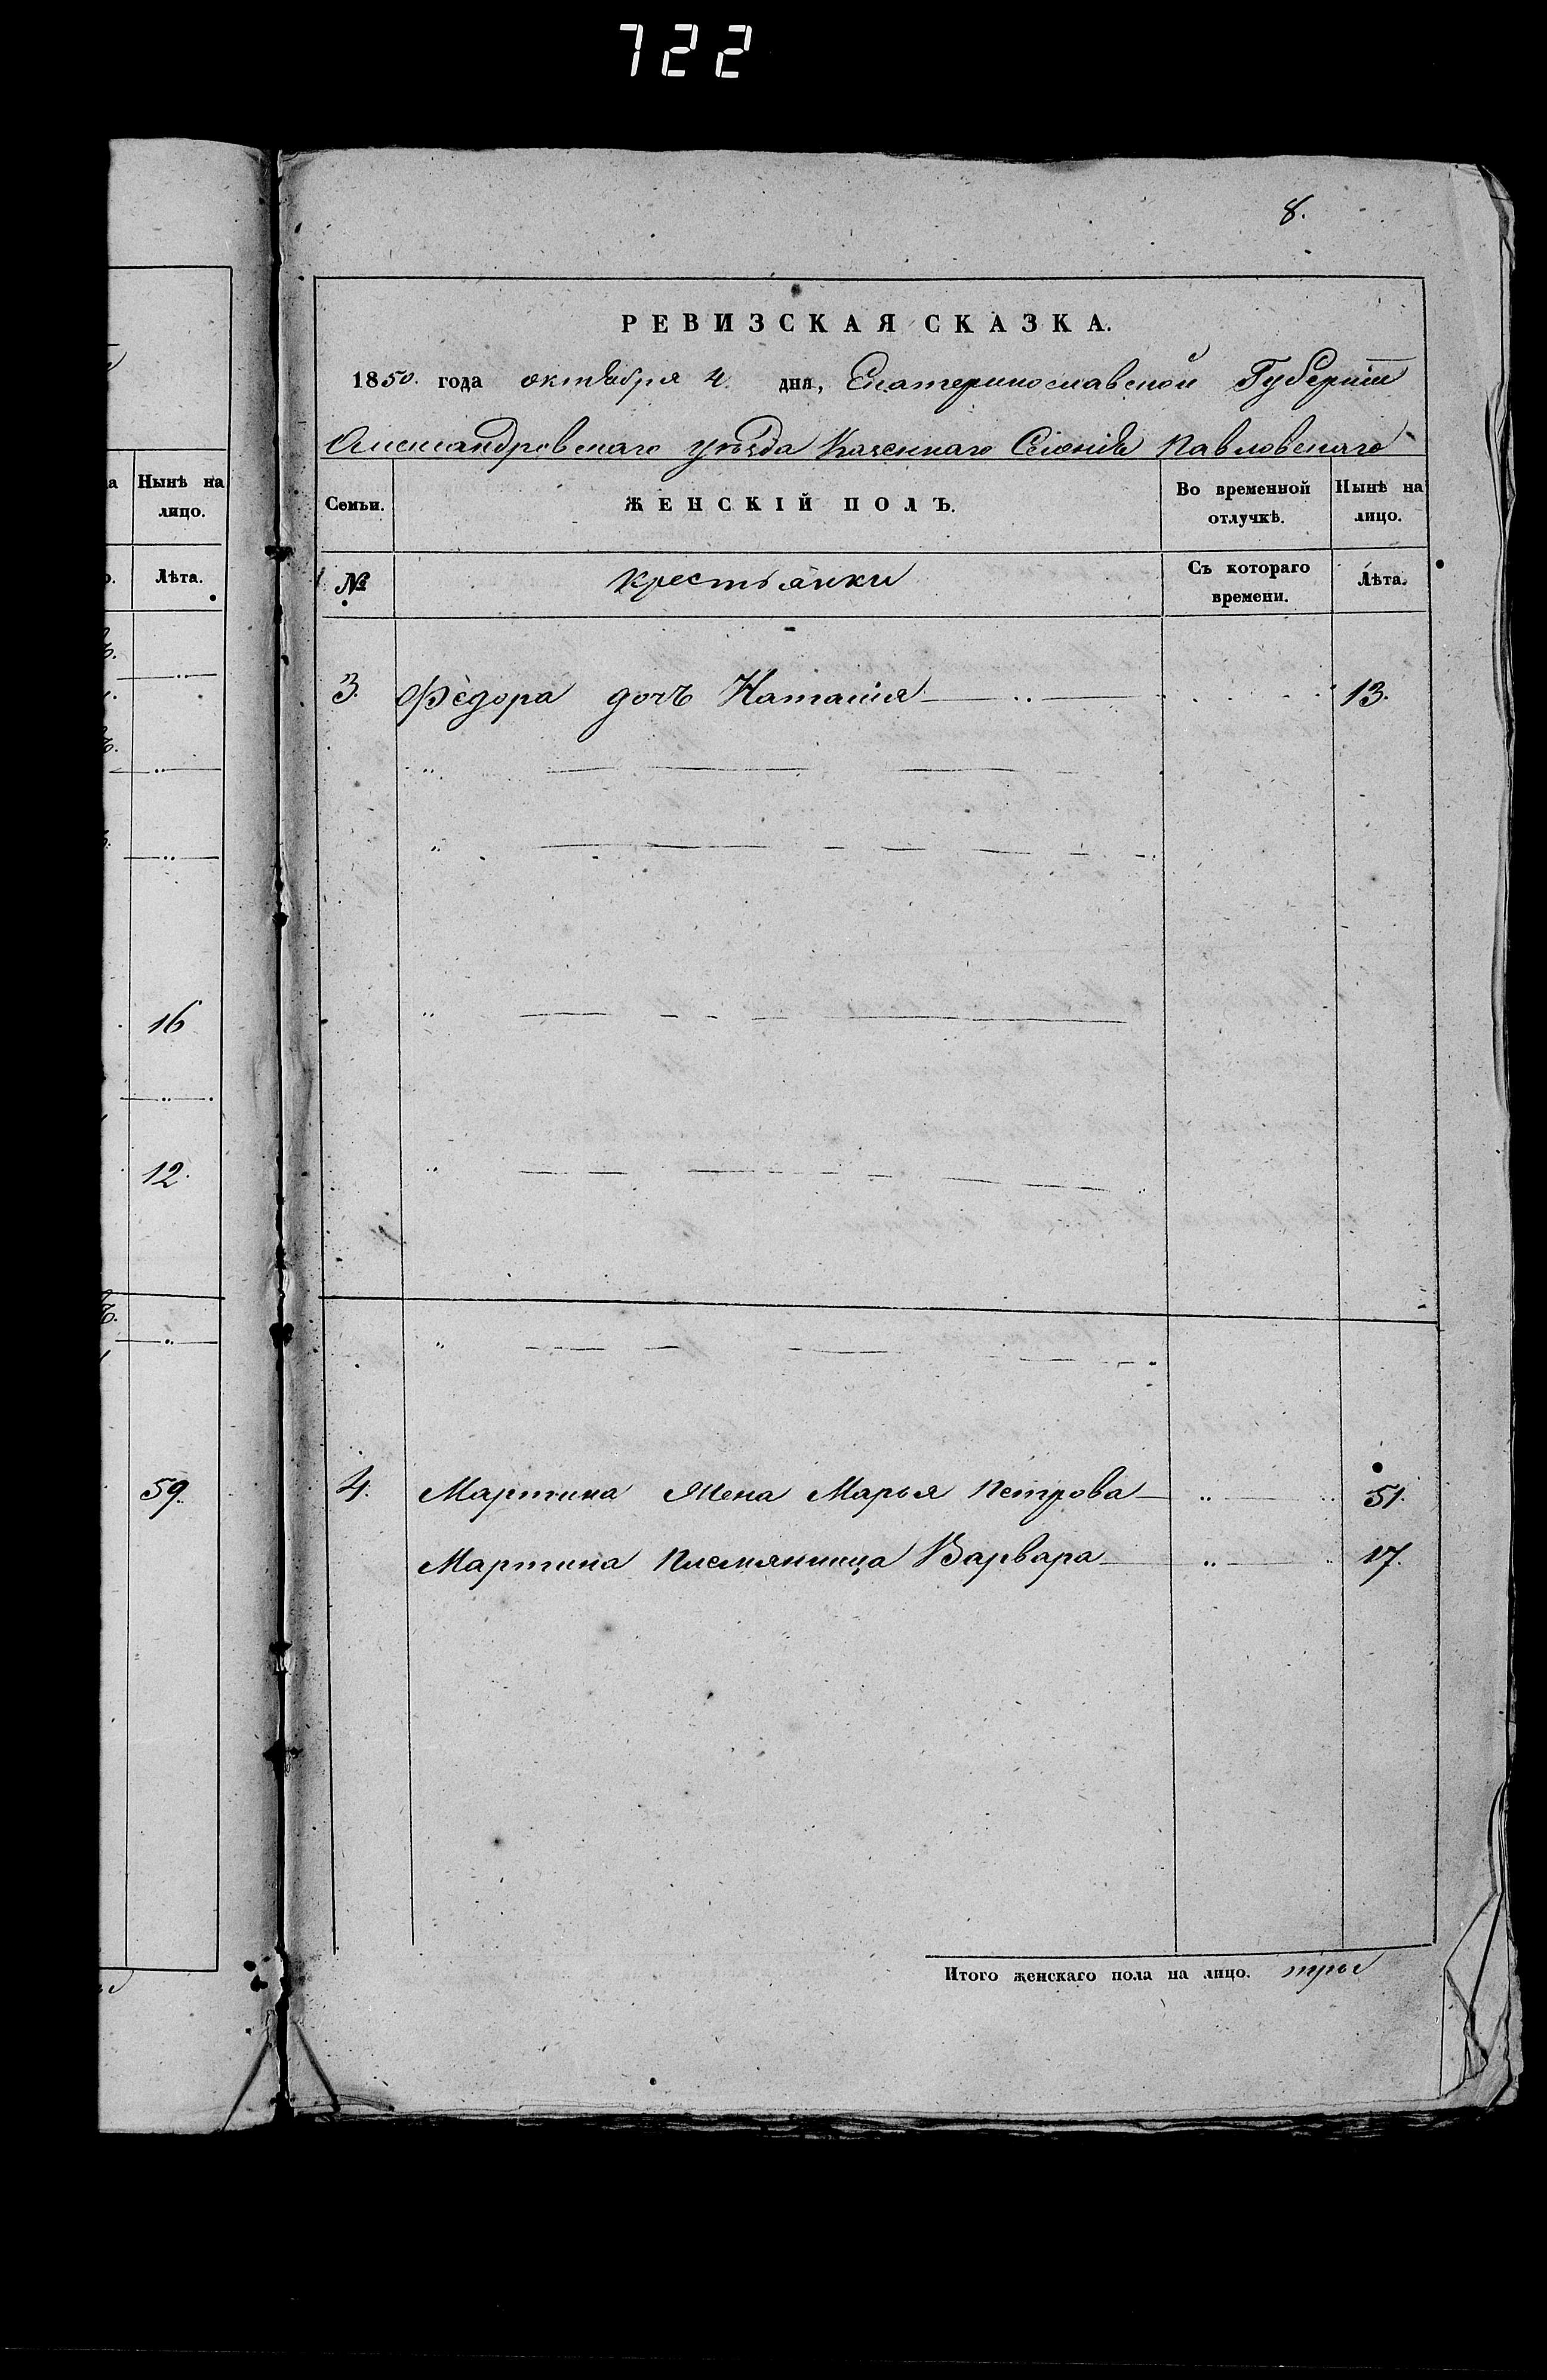 722
8.
РЕВИЗСКАЯ СКАЗКА.
1850. года октября 4. дня, Екатеринославской Губерніи
Александровскаго уѣзда Казеннаго Селенія Павловскаго
Нынѣ на лицо.
Лѣта.
16
12.
59.
Семьи. ЖЕНСКІЙ ПОЛЪ. Во временной отлучкѣ. Нынѣ на лицо.
№ Крестьянки Съ котораго времени. Лѣта.
3. Федора дочь Наталия 13.
4. Мартина Жена Марья Петрова 51.
Мартина Племянница Варвара 17.
Итого женскаго пола на лицо. три